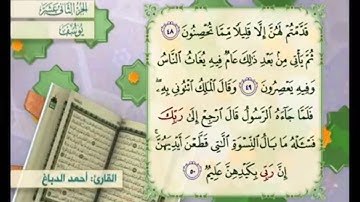 الجزء الثاني عشر
يوسف
قَدَّمْتُمْ لَهُنَّ إِلَّا قَلِيلًا مِّمَّا تُحْصِنُونَ ٤٨
ثُمَّ يَأْتِي مِنْ بَعْدِ ذَٰلِكَ عَامٌ فِيهِ يُغَاثُ النَّاسُ
وَفِيهِ يَعْصِرُونَ ٤٩ وَقَالَ الْمَلِكُ ائْتُونِي بِهِ
فَلَمَّا جَاءَهُ الرَّسُولُ قَالَ ارْجِعْ إِلَىٰ رَبِّكَ
فَسْئَلْهُ مَا بَالُ النِّسْوَةِ الَّتِي قَطَّعْنَ أَيْدِيَهُنَّ
إِنَّ رَبِّي بِكَيْدِهِنَّ عَلِيمٌ ٥٠
القارئ: أحمد الدباغ